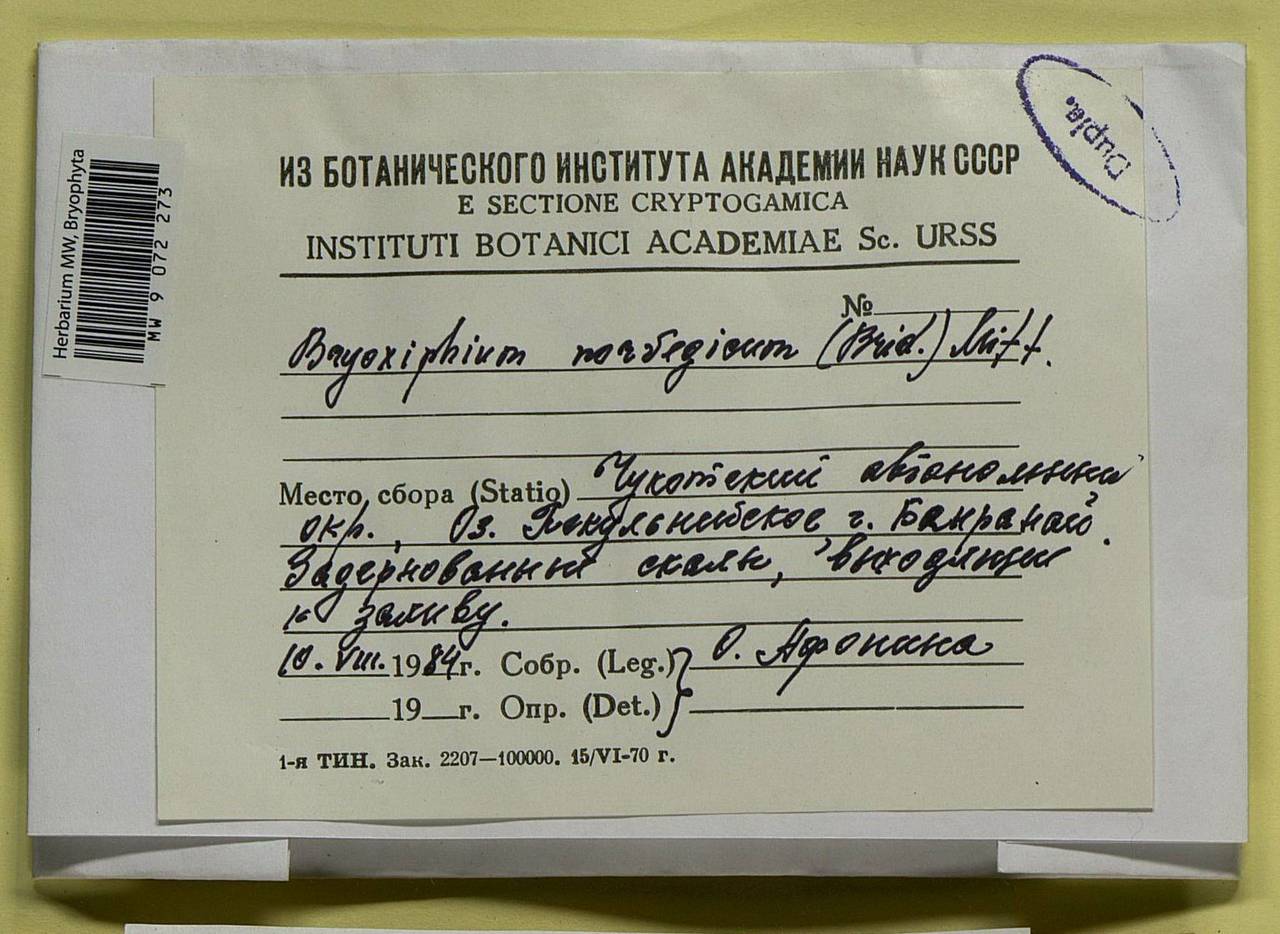 Herbarium MW, Bryophyta
MW 9 072 273
Dupla.
ИЗ БОТАНИЧЕСКОГО ИНСТИТУТА АКАДЕМИИ НАУК СССР
E SECTIONE CRYPTOGAMICA
INSTITUTI BOTANICI ACADEMIAE Sc. URSS
№
Bryoxiphium norvegicum (Brid.) Mitt.
Место сбора (Statio) Чукотский автономный
окр., Оз. Пекульнейское г.
Задернованные скалы, выходящие
к заливу.
10. VIII. 1984г. Собр. (Leg.) О. Афонина
19 г. Опр. (Det.)
1-я ТИН. Зак. 2207—100000. 15/VI-70 г.